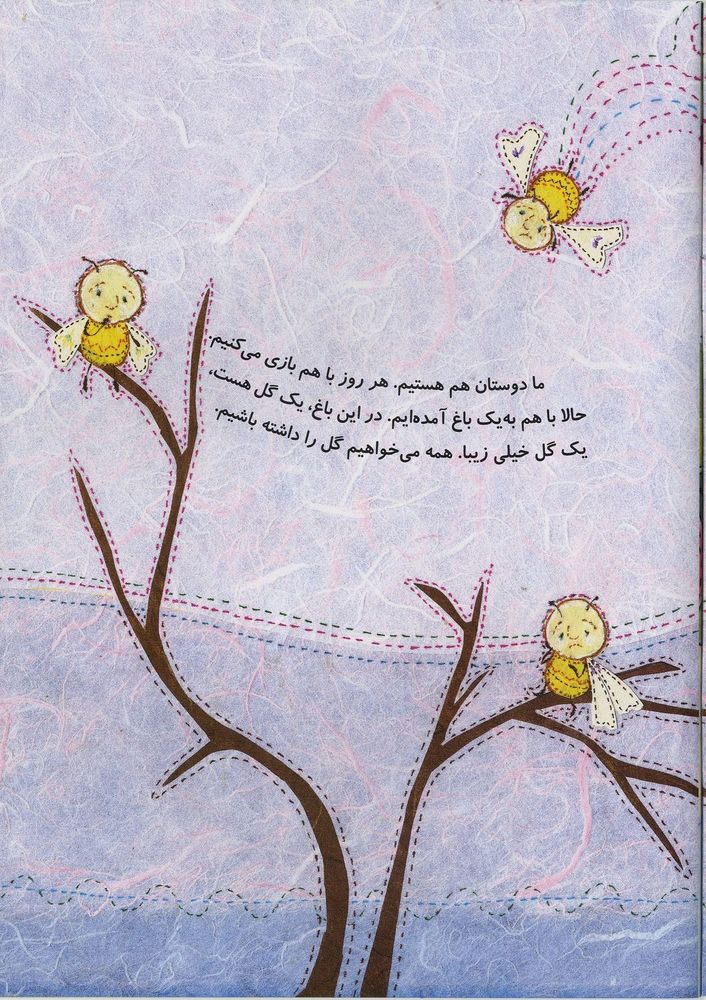 ما دوستان هم هستیم. هر روز با هم بازی می‌کنیم.
حالا با هم به‌یک باغ آمده‌ایم. در این باغ، یک گل هست،
یک گل خیلی زیبا. همه می‌خواهیم گل را داشته باشیم.